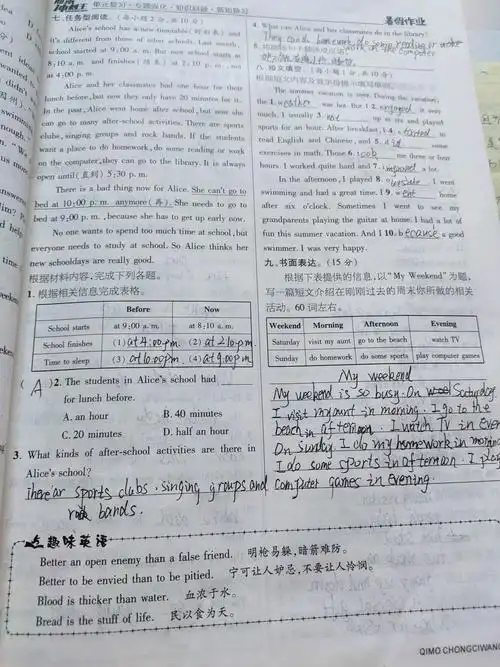 单元复习·专题强化·知识归纳·暑假复习
七、任务型阅读。(每小题2分,共10分)
Alice's school has a new timetable(时刻表) and
it's different from those of other schools. Last month,
school started at 9:00 a.m. But now school starts at
8:10 a.m. and finishes(结束) at 2:10 p.m., not
at 4:00 p.m.
Alice and her classmates had one hour for their
lunch before, but now they only have 20 minutes for it.
In the past, Alice went home after school, but now she
can go to many after-school activities. There are sports
clubs, singing groups and rock bands. If the students
want a place to do homework, do some reading or work
on the computer, they can go to the library. It is always
open until(直到) 5:30 p.m.
There is a bad thing now for Alice. She can't go to
bed at 10:00 p.m. anymore(再). She needs to go to
bed at 9:00 p.m., because she has to get up early now.
No one wants to spend too much time at school, but
everyone needs to study at school. So Alice thinks her
new schooldays are really good.
根据材料内容,完成下列各题。
1. 根据相关信息完成表格。
Before Now
School starts at 9:00 a.m. at 8:10 a.m.
School finishes (1) at 4:00 p.m. (2) at 2:10 p.m.
Time to sleep (3) at 10:00 p.m. (4) at 9:00 p.m.
( A )2. The students in Alice's school had
for lunch before.
A. an hour B. 40 minutes
C. 20 minutes D. half an hour
3. What kinds of after-school activities are there in
Alice's school?
There ar sports clubs. singing groups and
rock bands.
暑假作业
4. What can Alice and her classmates do in the library?
They can do homework, do some reading or work
on the computer
八、短文填空。(每小题1分,共10分)
The summer vacation is over. During the vacation,
the 1. weather was hot. But I 2. enjoyed it very
much. I usually 3. up at six and played
sports for an hour. After breakfast, I 4. started to
read English and Chinese, and 5. did some
exercises in math. Those 6. took me three or four
hours. I worked quite hard and 7. improved a lot.
In the afternoon, I played 8. outside. I went
swimming and had a great time. I 9. went home
after six o'clock. Sometimes I went to see my
grandparents playing the guitar at home. I had a lot of
fun this summer vacation. And I 10. because a good
swimmer. I was very happy.
九、书面表达。(15分)
根据下表提供的信息,以“My Weekend”为题,
写一篇短文介绍在刚刚过去的周末你所做的相关
活动。60词左右。
Weekend Morning Afternoon Evening
Saturday visit my aunt go to the beach watch TV
Sunday do homework do some sports play computer games
My weekend
My weekend is so busy. On Saturday.
I visit my aunt in morning. I go to the
beach in afternoon. I watch TV in even
On Sunday. I do my homework in morning
I do some sports in afternoon. I play
computer games in evening.
趣味英语
Better an open enemy than a false friend. 明枪易躲,暗箭难防。
Better to be envied than to be pitied. 宁可让人妒忌,不要让人怜悯。
Blood is thicker than water. 血浓于水。
Bread is the stuff of life. 民以食为天。
QIMO CHONGCIWANG